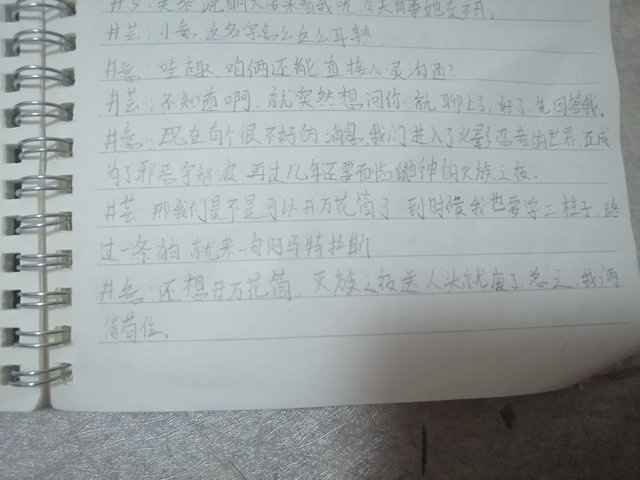 井芸：小无，这名字怎么这么耳熟
井无：哇趣，咱俩还能直接心灵沟通？
井芸：不知道啊，就突然想问你，就聊上了，好了，先回答我。
井无：现在有个很不好的消息，我们进入了火影忍者的世界，还成
为了邪恶宇智波，再过几年还要面临鼬神的灭族之夜。
井芸：那我们是不是可以开万花筒了，到时候我也要学二柱子，路
过一条狗，就来一句阿马特拉斯
井无：还想开万花筒，灭族之夜送人头就废了，总之，我俩
得苟住。